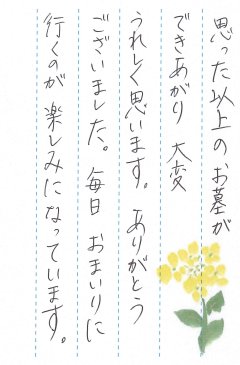 思った以上のお墓が
できあがり 大変
うれしく思います。 ありがとう
ございました。 毎日 おまいりに
行くのが 楽しみになっています。